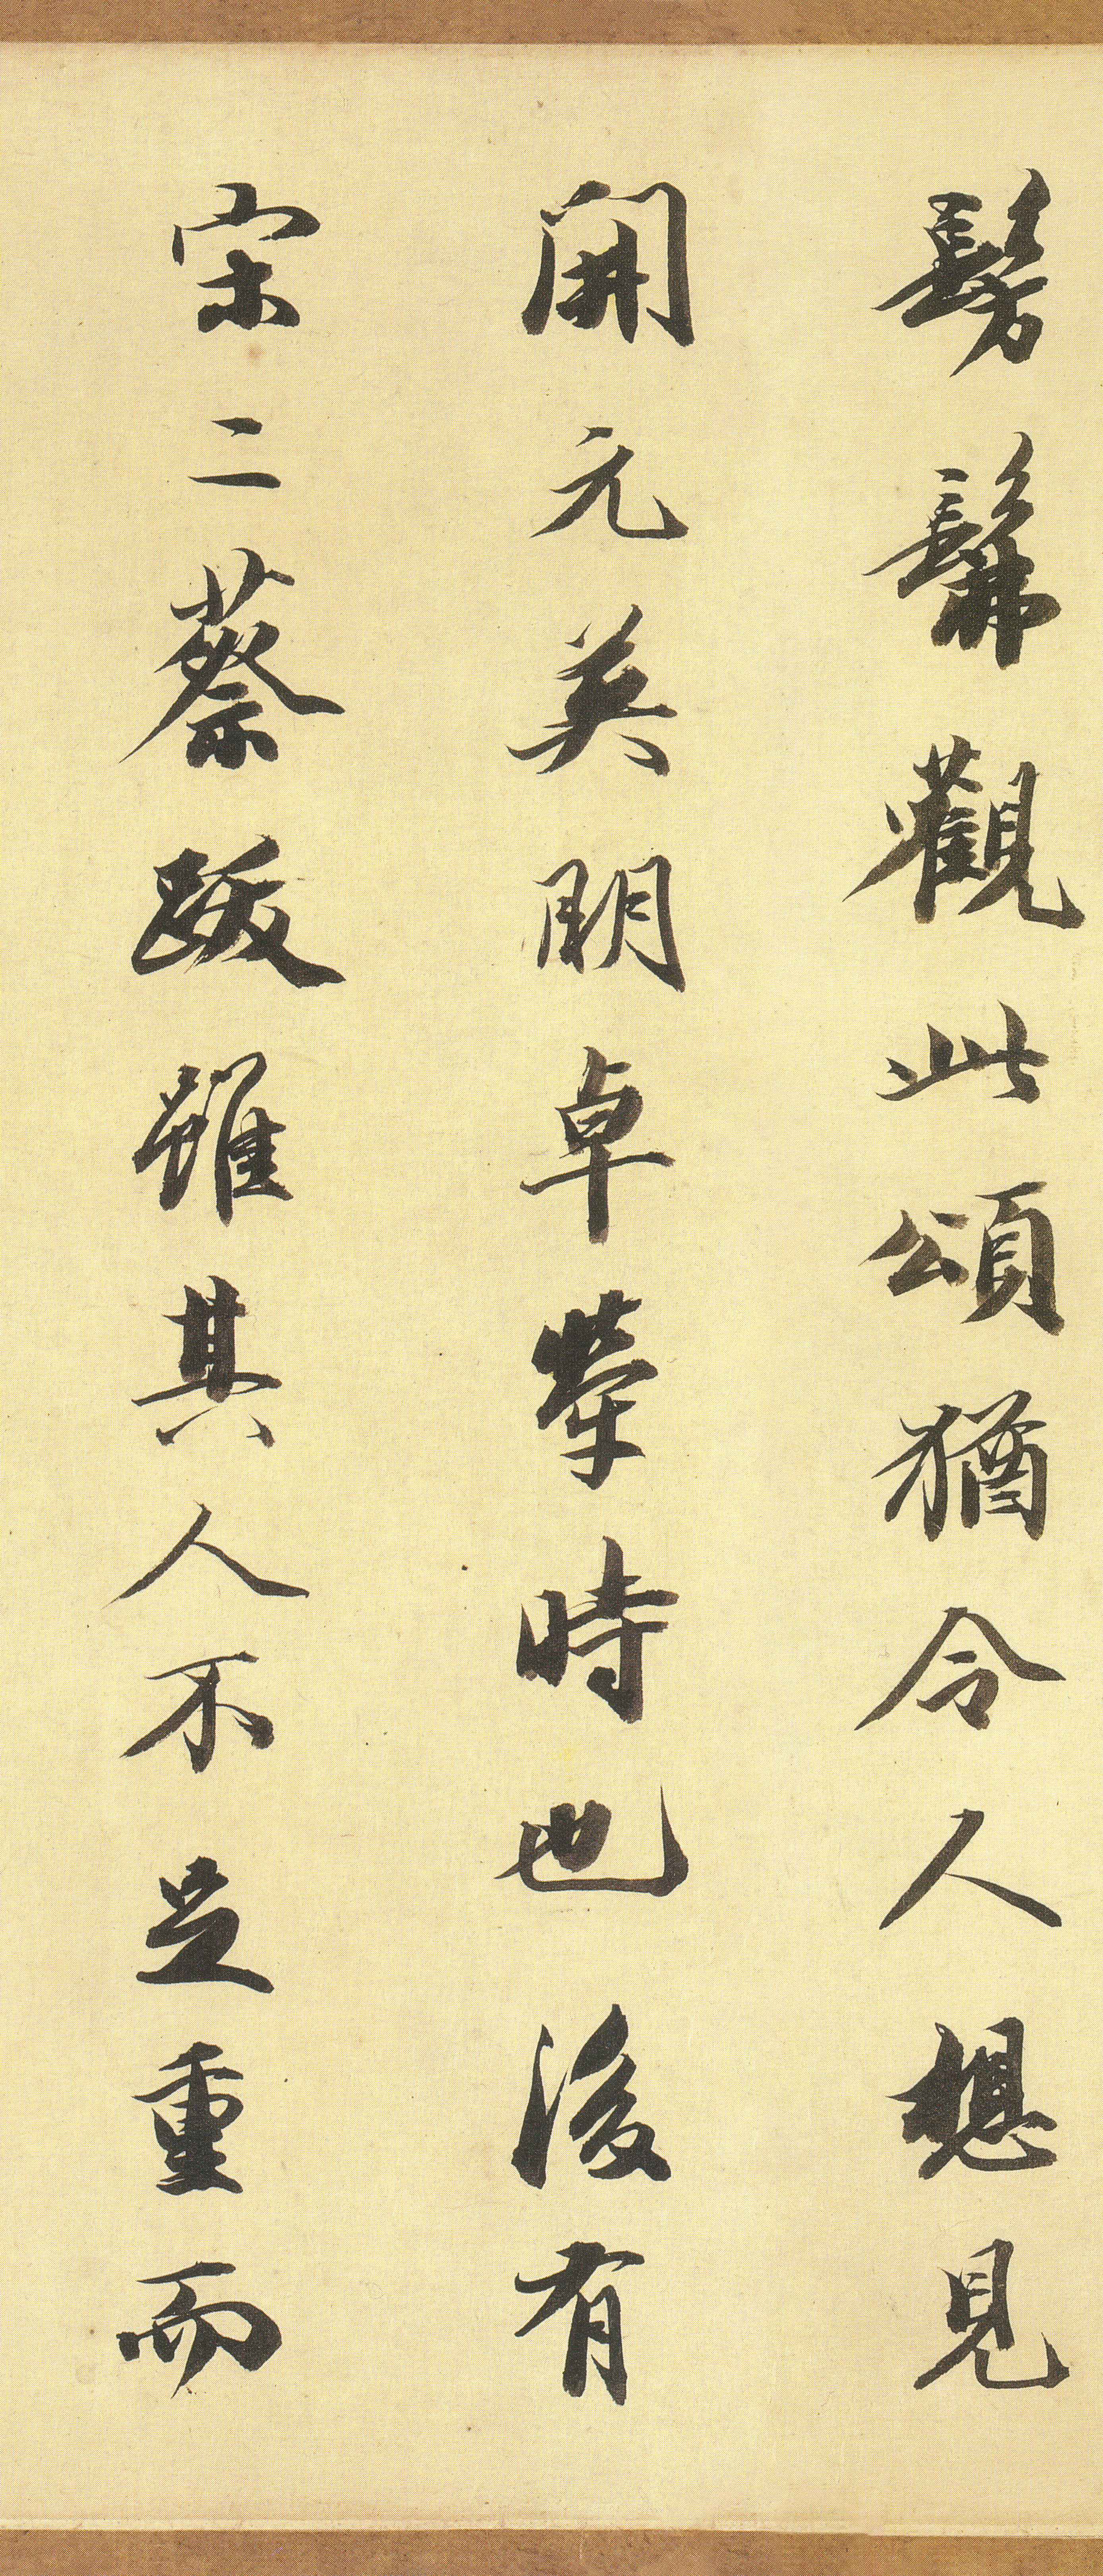 髣髴觀此頌猶令人想見
開元英明卓犖時也後有
宋二蔡跋雖其人不足重而